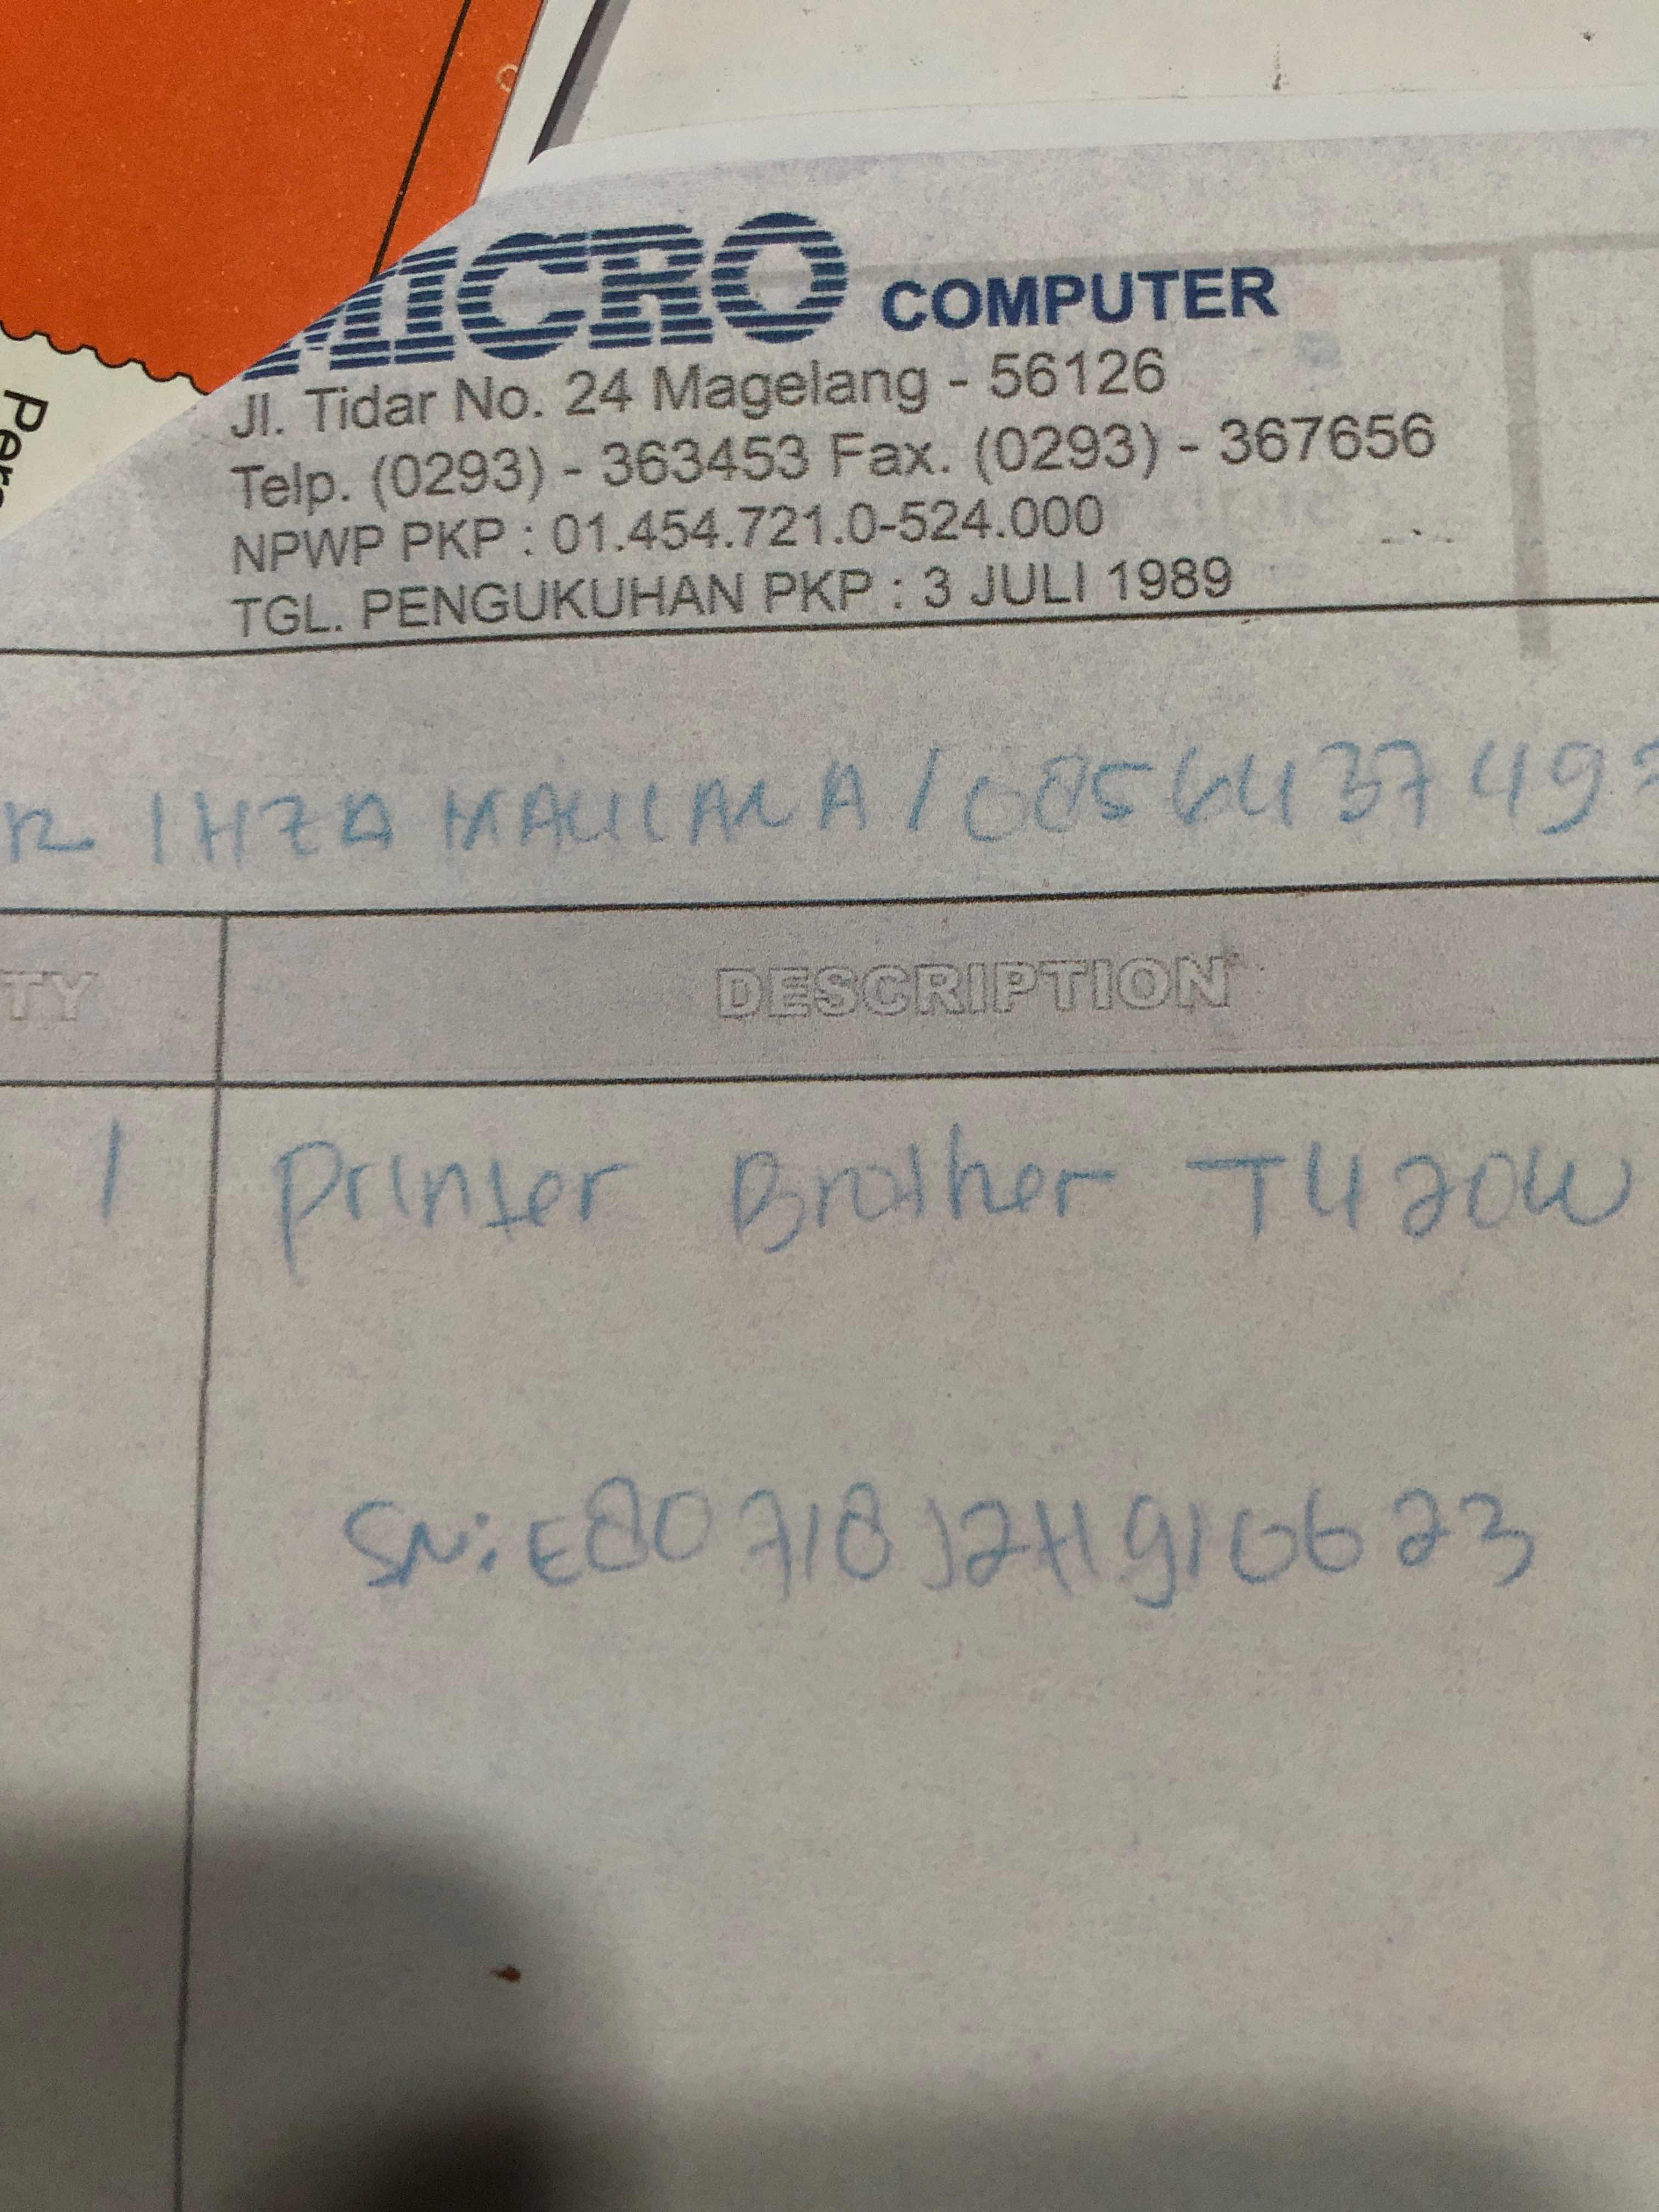 MICRO COMPUTER
Jl. Tidar No. 24 Magelang - 56126
Telp. (0293) - 363453 Fax. (0293) - 367656
NPWP PKP : 01.454.721.0-524.000
TGL. PENGUKUHAN PKP : 3 JULI 1989
IHZA MAULANA /
TY DESCRIPTION
1 Printer Brother T420W
SN:
Per